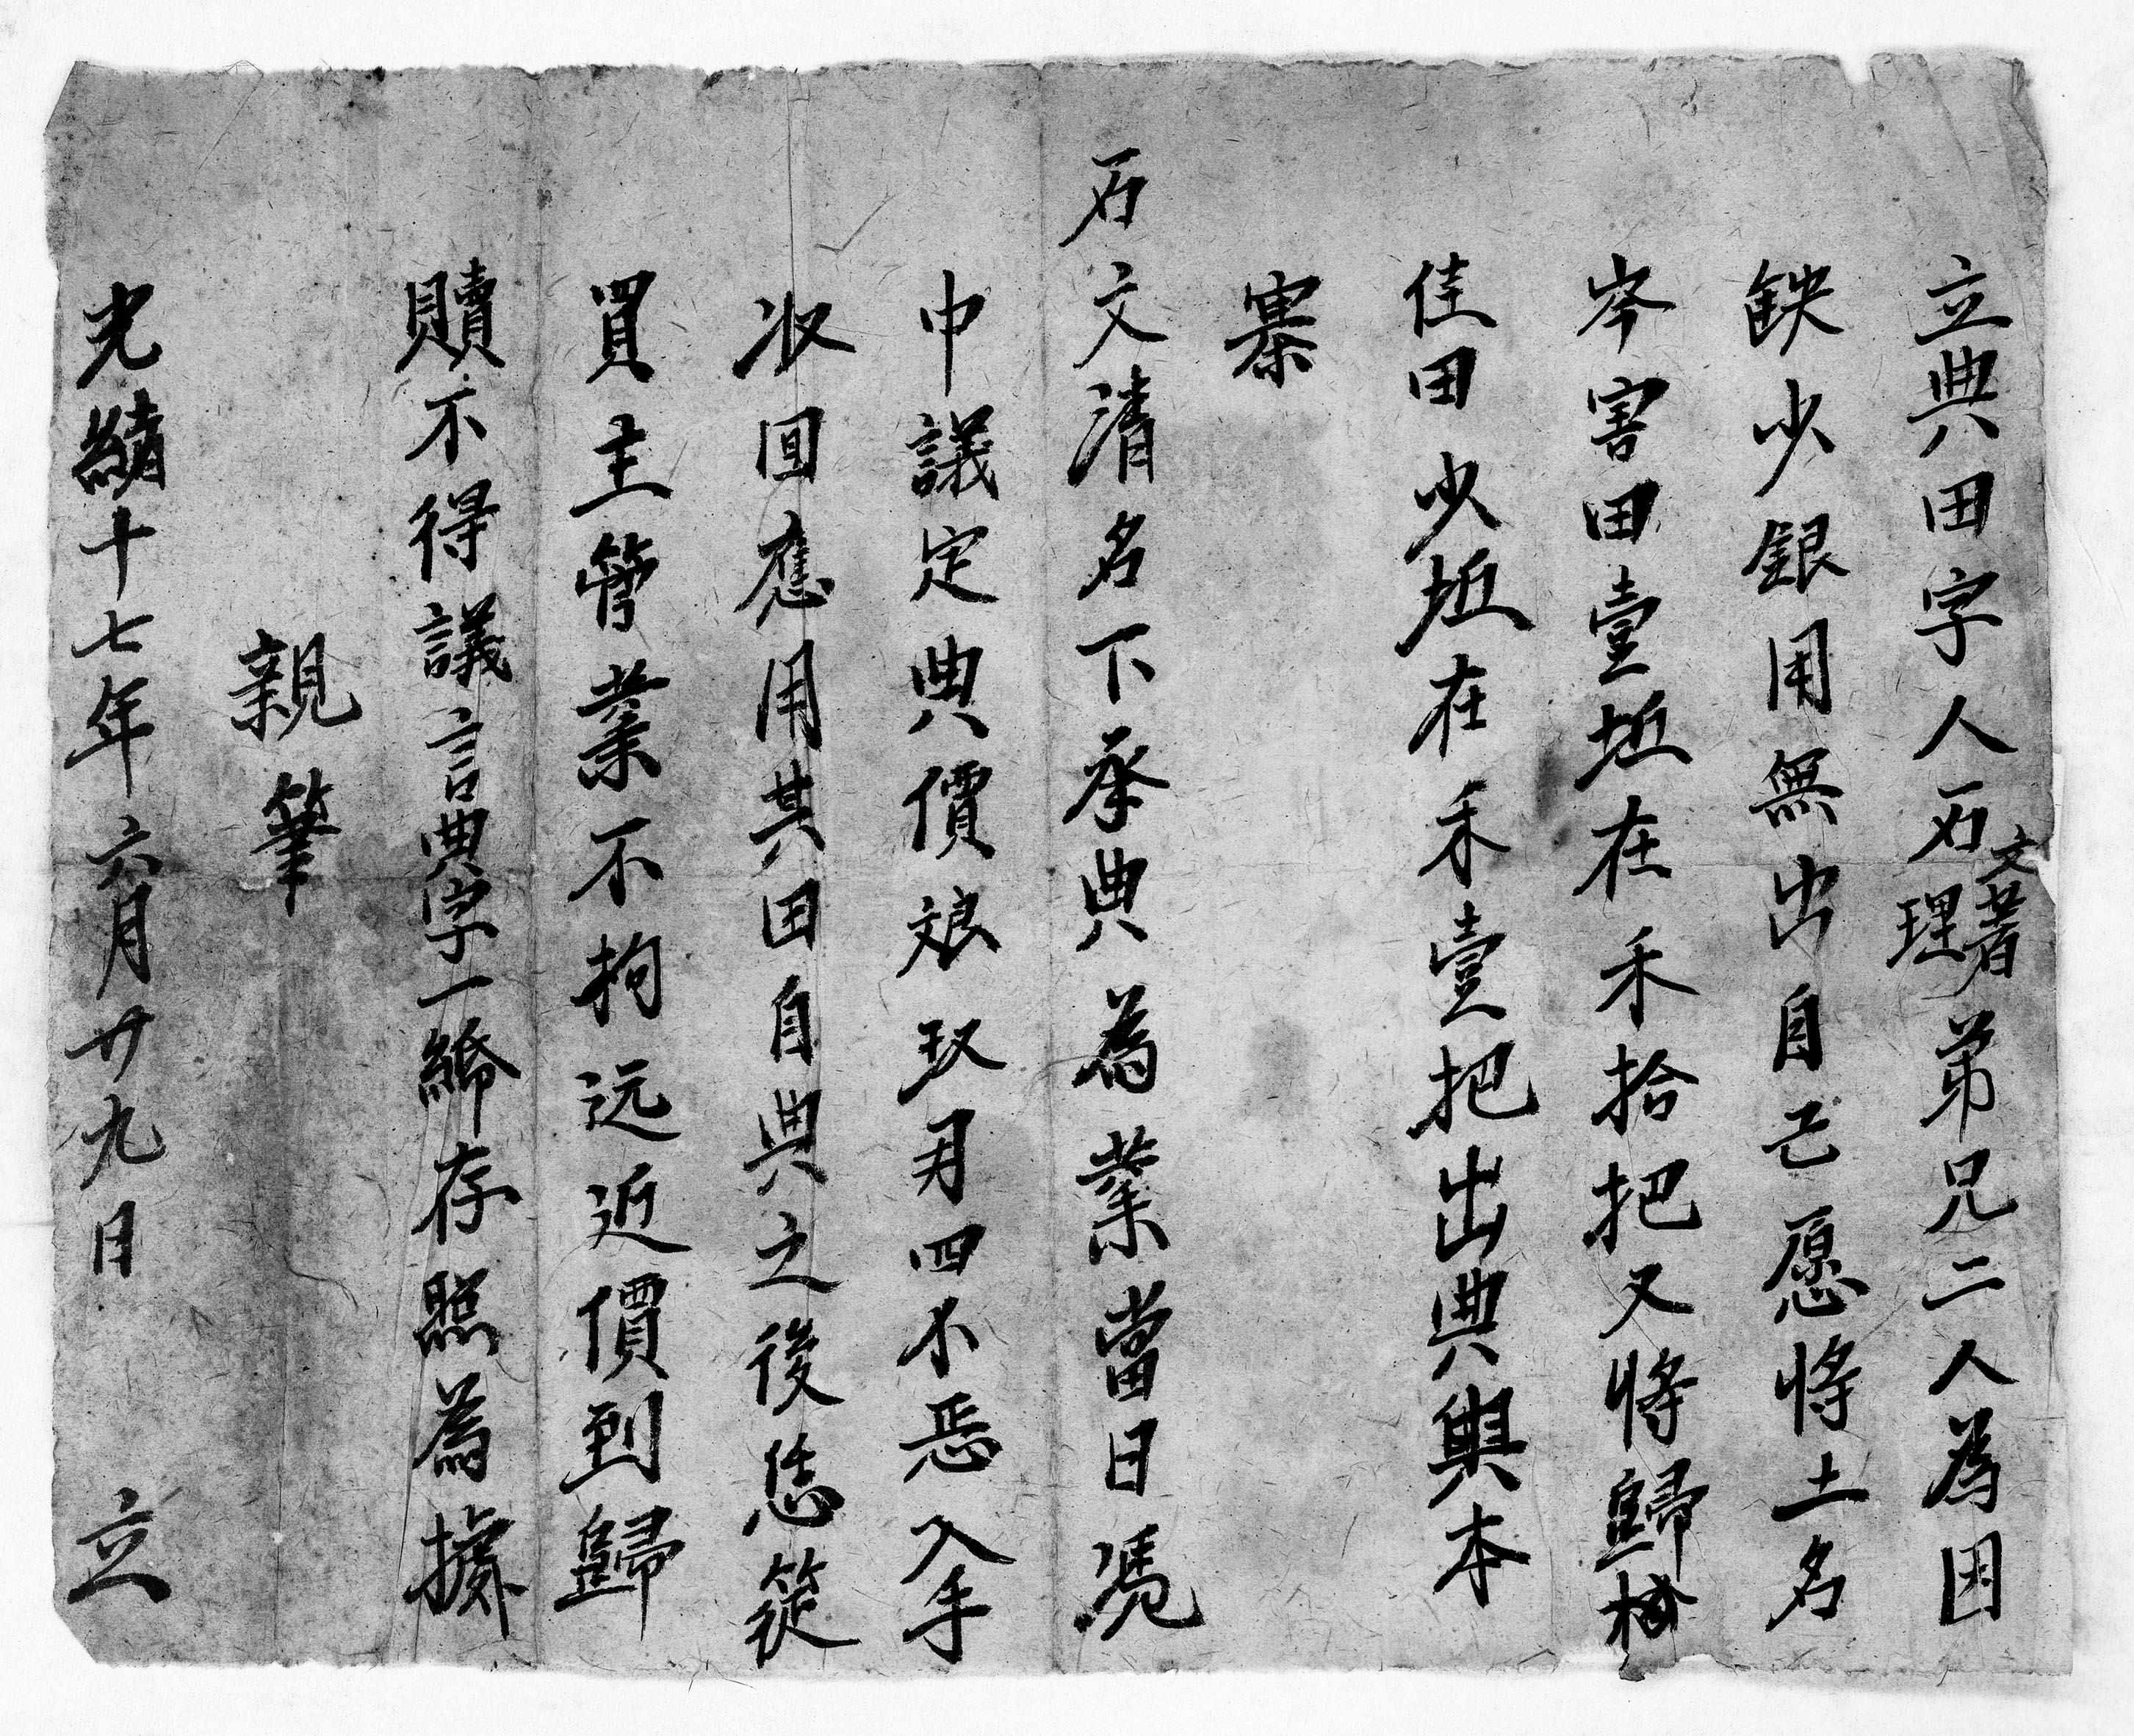 立典田字人石文著理弟兄二人為因
缺少銀用無出自己愿將土名
岑害田壹坵在禾拾把又將歸
佳田少坵在禾壹把出典與本
寨
石文清名下承典為業當日凴
中議定典價艮玖月四不恶入手
収回應用其田自典之後恁従
買主管業不拘远近價到歸
贖不得議言典字一㡧存照為據
親筆
光緒十七年六月廿九日 立